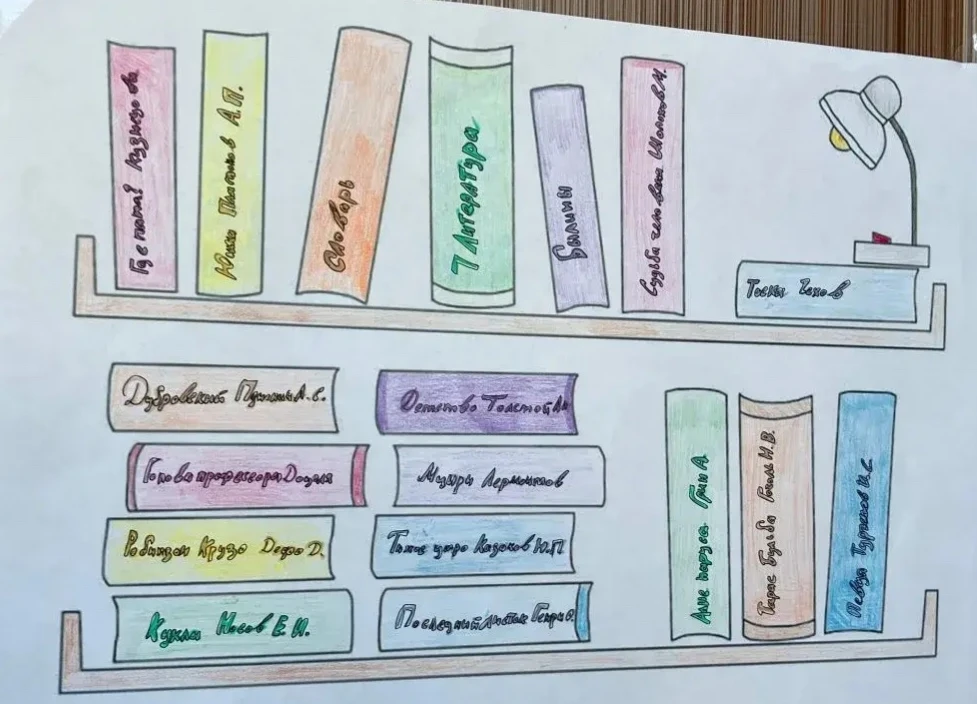 Где мята? Кузнецова
Юшка Платонов А.П.
Словарь
7 Литература
Былины
Судьба человека Шолохов М.
Тоска Чехов
Дубровский Пушкин А.С.
Детство Толстой Л.Н
Голова профессора Доуэля
Мцыри Лермонтов
Робинзон Крузо Дефо Д.
Тихое утро Казаков Ю.П
Кукла Носов Е.И.
Последний листок Генри О.
Алые паруса Грин А.
Тарас Бульба Гоголь Н.В.
Певцы Тургенев И.С.